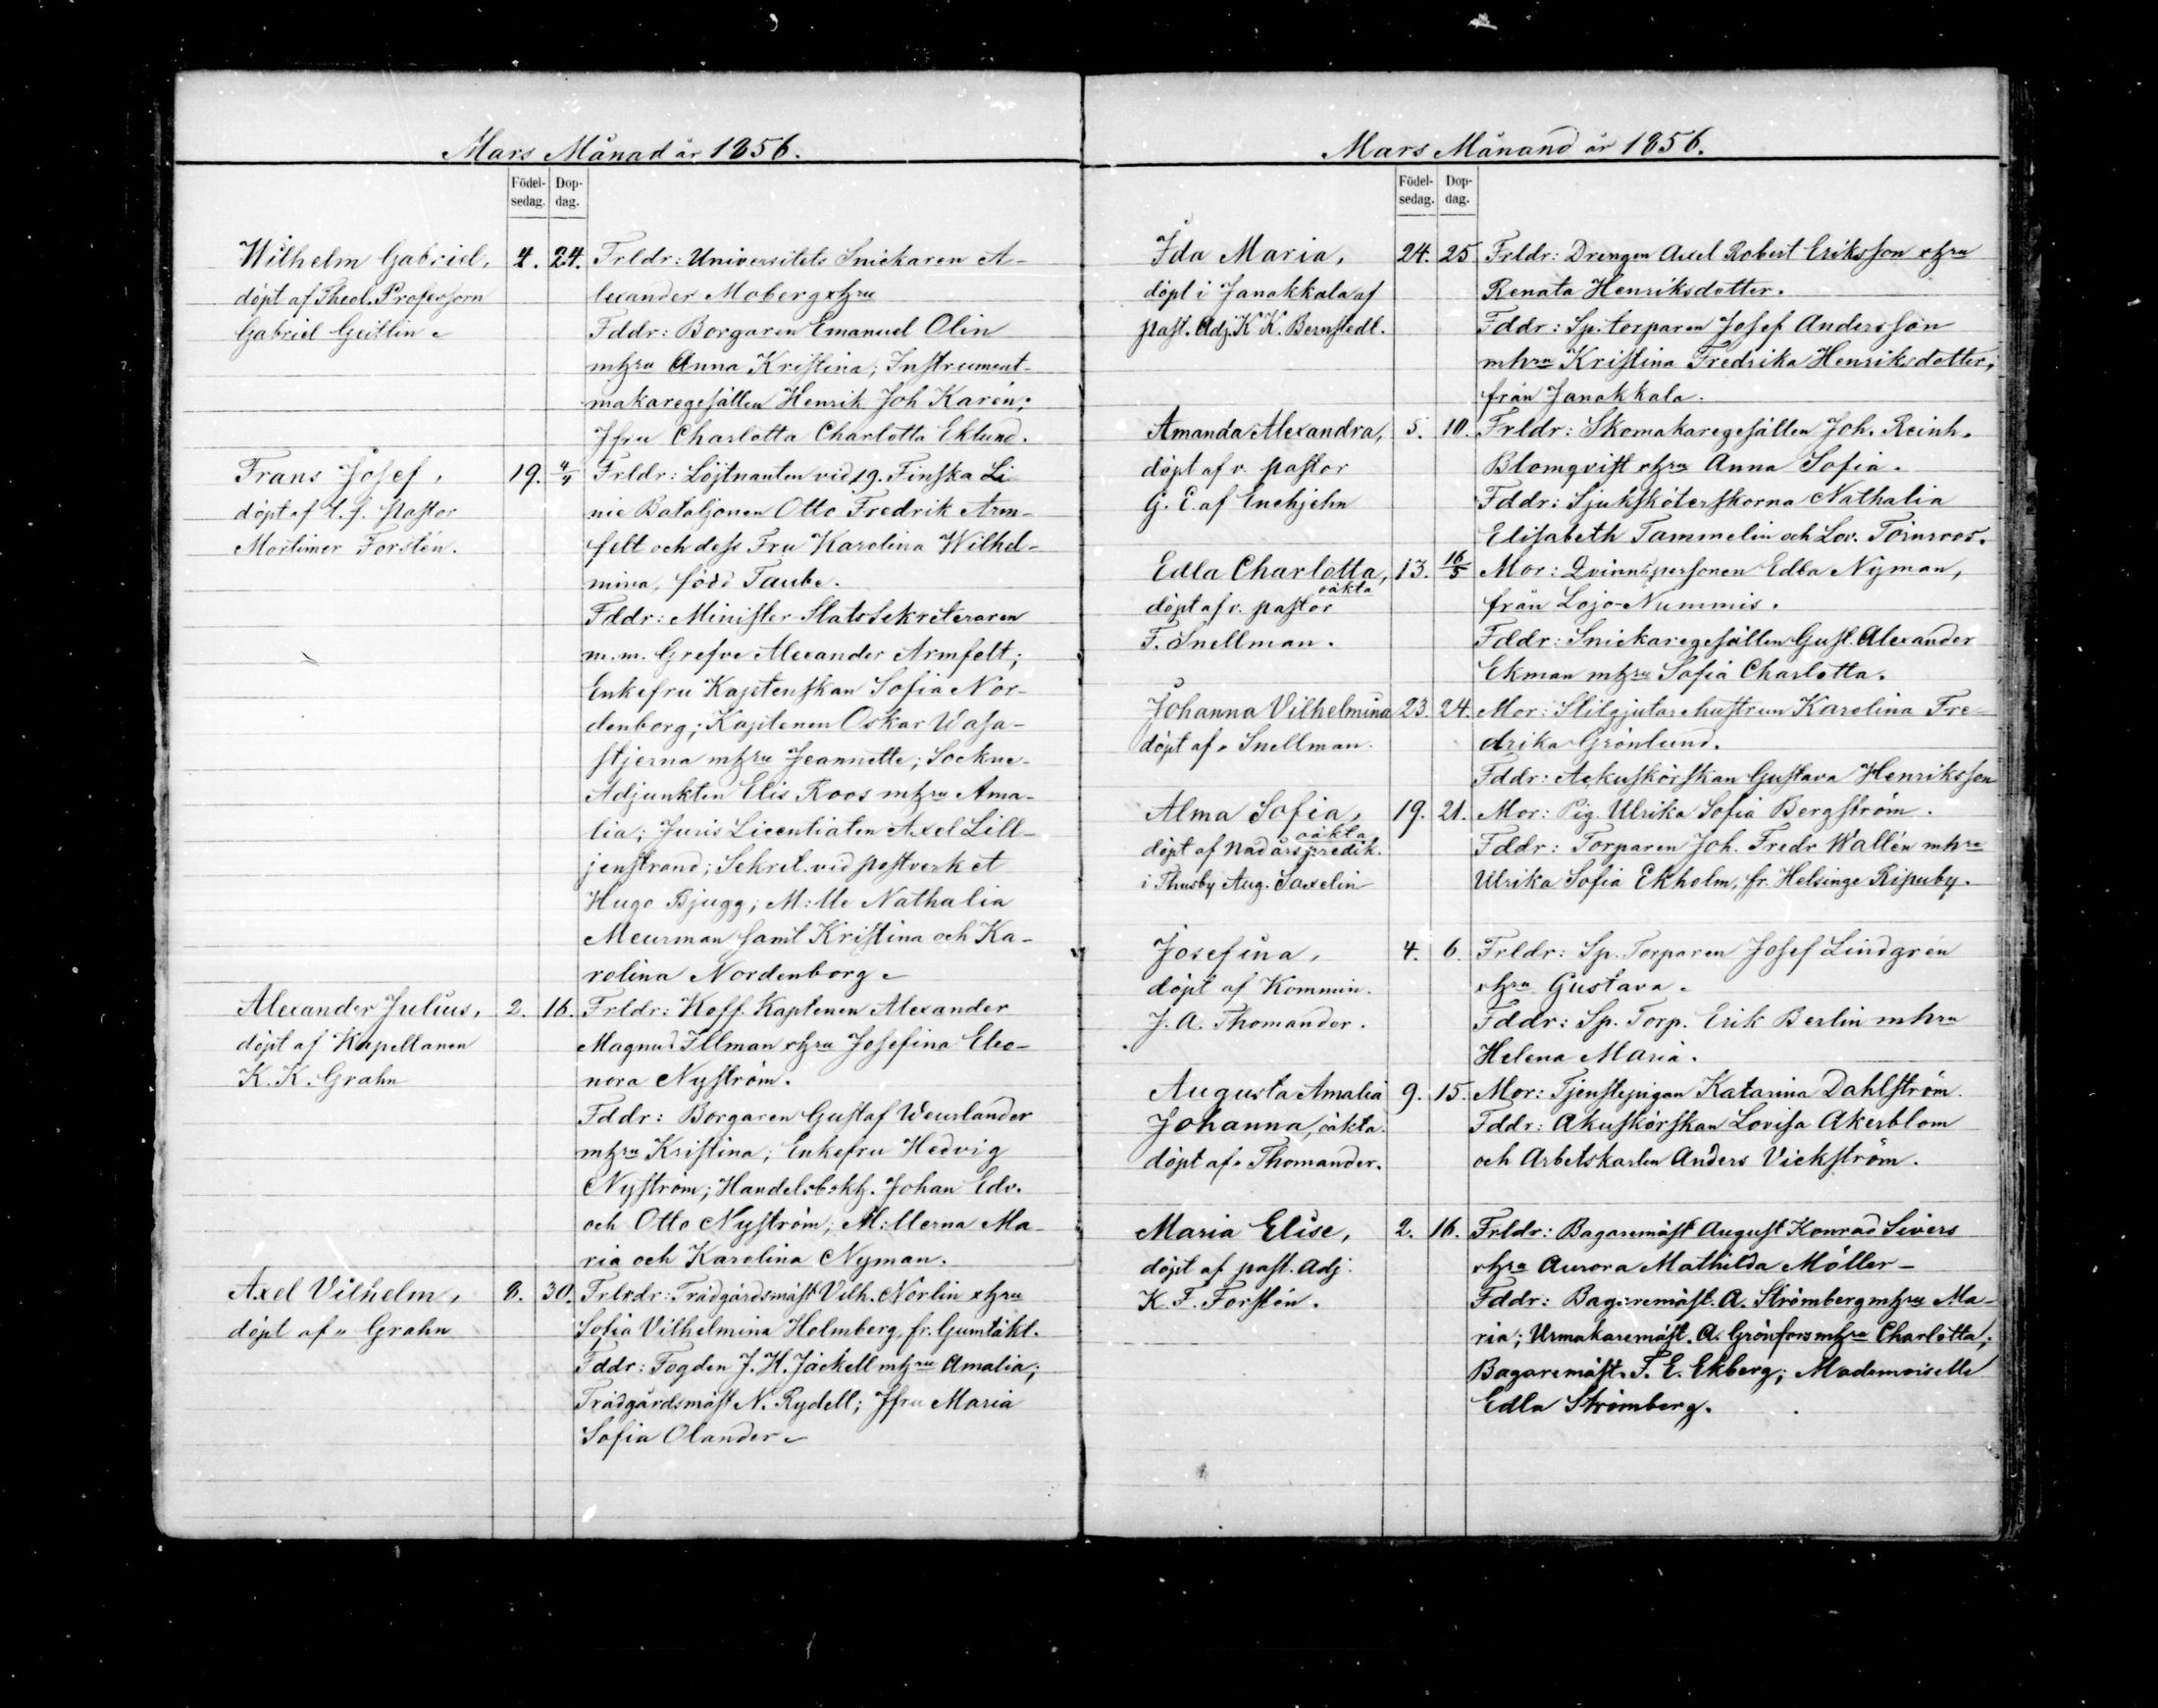 Mars Månad år 1856.
Födel-
sedag.
Dop-
dag.
Wilhelm Gabriel,
döpt af Theol. Professorn
Gabriel Geitlin.
4. 24.
Frldr: Universitets Snickaren A-
lexander Moberg o. hru
Fddr: Borgaren Emanuel Olin
m. hru Anna Kristina; Instrument-
makaregesällen Henrik Joh Karén;
Jfru Charlotta Charlotta Eklund.
Frans Josef,
döpt af t. f. pastor
Mortimer Forstén.
19. 4/4
Frldr: Löjtnanten vid 19. Finska Li-
nie Bataljonen Otto Fredrik Arm-
felt och dess Fru Karolina Wilhel-
mina, född Taube.
Fddr: Minister Stats Sekreteraren
m.m. Grefve Alexander Armfelt;
Enkefru Kaptenskan Sofia Nor-
denborg; Kaptenen Oskar Wasa-
stjerna m. hru Jeannette; Sockne-
Adjunkten Elis Roos m. hru Ama-
lia; Juris Licentiaten Axel Lill-
jenstrand; Sekret. vid postverket
Hugo Bjugg; M:lle Nathalia
Meurman samt Kristina och Ka-
rolina Nordenborg.
Alexander Julius,
döpt af Kapellanen
K. K. Grahn
2. 16.
Frldr: Koff. Kaptenen Alexander
Magnus Illman o. hru Josefina Eleo-
nora Nyström.
Fddr: Borgaren Gustaf Weurlander
m. hru Kristina; Enkefru Hedvig
Nyström; Handelsbokh. Johan Edv.
och Otto Nyström; M:llerna Ma-
ria och Karolina Nyman.
Axel Vilhelm,
döpt af " Grahn
8. 30.
Frlrdr: Trädgårdsmäst Vilh. Norlin o. hru
Sofia Vilhelmina Holmberg, fr. Gumtäkt.
Fddr: Fogden J. H. Jäckell m. hru Amalia;
Trädgårdsmäst N. Rydell; Jfru Maria
Sofia Olander.
Mars Månand år 1856.
Födel-
sedag.
Dop-
dag.
Ida Maria,
döpt i Janakkala af
past. Adj. K K. Bernstedt.
24. 25
Frldr: Drengen Axel Robert Eriksson o. hru
Renata Henriksdotter.
Fddr: Sp. torparen Josef Andersson
m hru Kristina Fredrika Henriksdotter,
från Janakkala.
Amanda Alexandra,
döpt af v. pastor
G. E. af Enehjelm
5. 10.
Frldr: Skomakaregesällen Joh. Reinh.
Blomqvist o. hru Anna Sofia.
Fddr: Sjuksköterskorna Nathalia
Elisabeth Tammelin och Lov. Törnroos.
Edla Charlotta,
oäkta
döpt af v. pastor
F. Snellman.
13. 16/5
Mor: Qvinnspersonen Edla Nyman,
från Lojo-Nummis.
Fddr: Snickaregesällen Gust. Alexander
Ekman m. hru Sofia Charlotta.
Johanna Vilhelmina
döpt af " Snellman.
23. 24.
Mor: Stilgjutarehustrun Karolina Fre-
drika Grönlund.
Fddr: Ackuskörskan Gustava Henriksson
Alma Sofia,
oäkta
döpt af Nadårspredik.
i Thusby Aug. Saxelin
19. 21.
Mor: Pig. Ulrika Sofia Bergström.
Fddr: Torparen Joh. Fredr Wallén m hru
Ulrika Sofia Ekholm, fr. Helsinge Ripuby.
Josefina,
döpt af Kommin.
J. A. Thomander.
4. 6.
Frldr: Sp. Torparen Josef Lindgrén
o. hru Gustava.
Fddr: Sp. Torp. Erik Berlin m hru
Helena Maria.
Augusta Amalia
Johanna, oäkta.
döpt af " Thomander.
9. 15.
Mor: Tjenstepigan Katarina Dahlström.
Fddr: Akuskörskan Lovisa Akerblom
och Arbetskarlen Anders Vickström.
Maria Elise,
döpt af past. Adj.
K. F. Forstén.
2. 16.
Frldr: Bagaremäst August Konrad Sivers
o. hru Aurora Mathilda Möller-
Fddr: Bagaremäst. A. Strömberg m. hru Ma-
ria; Urmakaremäst. A. Grönfors m. hru Charlotta;
Bagaremäst. F. E. Ekberg; Mademoiselle
Edla Strömberg.